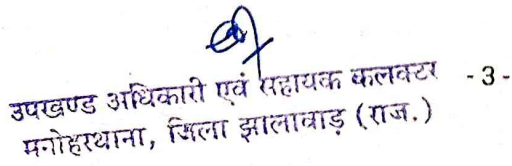 उपखण्ड अधिकारी एवं सहायक कलक्टर - 3 -
मनोहरथाना, जिला झालावाड़ (राज.)